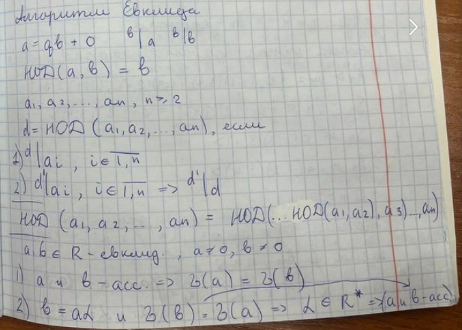 Алгоритм Евклида
a = qb + 0   b|a   b|b
НОД(a, b) = b
a₁, a₂, ..., aₙ, n ≥ 2
d = НОД (a₁, a₂, ..., aₙ), если
1) d|aᵢ, i ∈ 1,n
2) d'|aᵢ, i ∈ 1,n => d'|d
НОД (a₁, a₂, ..., aₙ) = НОД(... НОД(a₁, a₂), a₃)..., aₙ)
a, b ∈ R - евклид., a ≠ 0, b ≠ 0
1) a и b - асс. => δ(a) = δ(b)
2) b = aL и δ(b) = δ(a) => L ∈ R* => (a и b - асс)